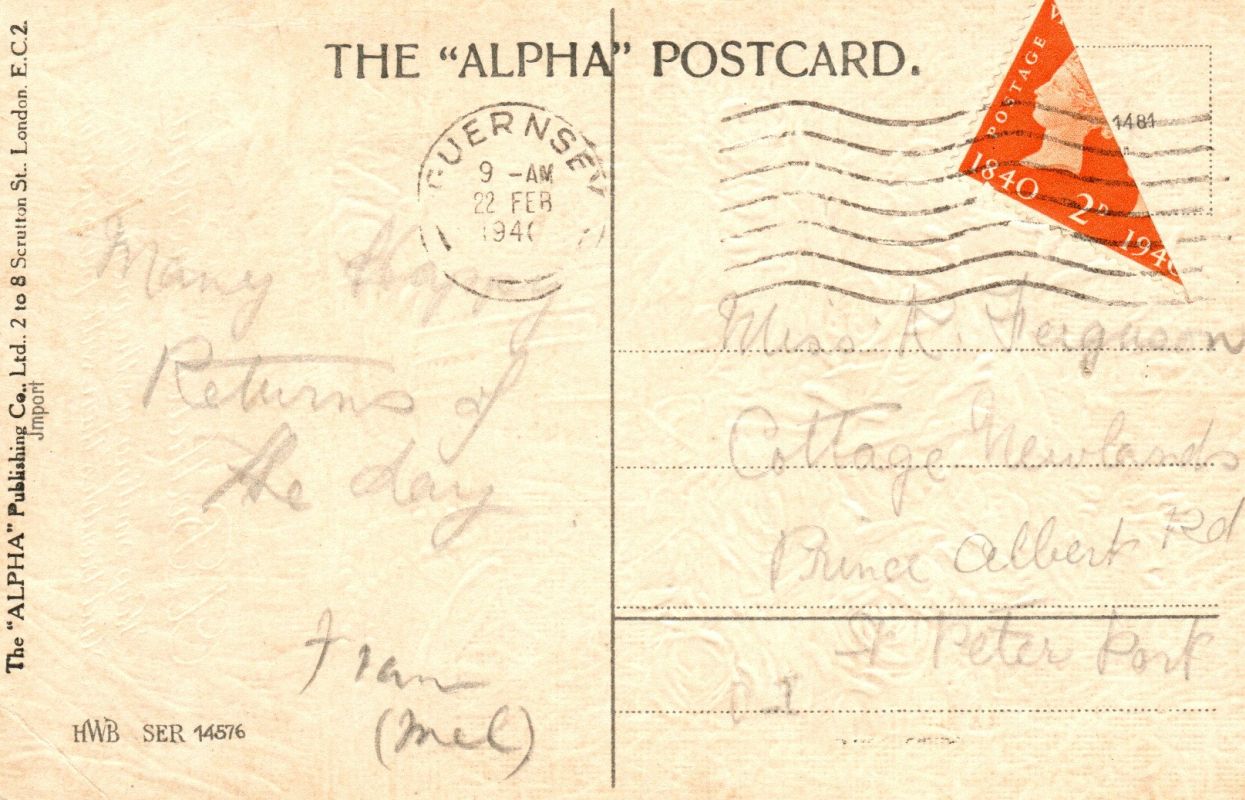 THE “ALPHA” POSTCARD.
The “ALPHA” Publishing Co., Ltd., 2 to 8 Scrutton St., London. E.C.2.
Jmport
GUERNSEY
9 -AM
22 FEB
194
POSTAGE
1840 2D 194
1481
Many Happy
Returns of
the day
(Mel)
HWB SER 14576
Miss K. Ferguson
Cottage Newlands
Prince Albert Rd
St Peter Port